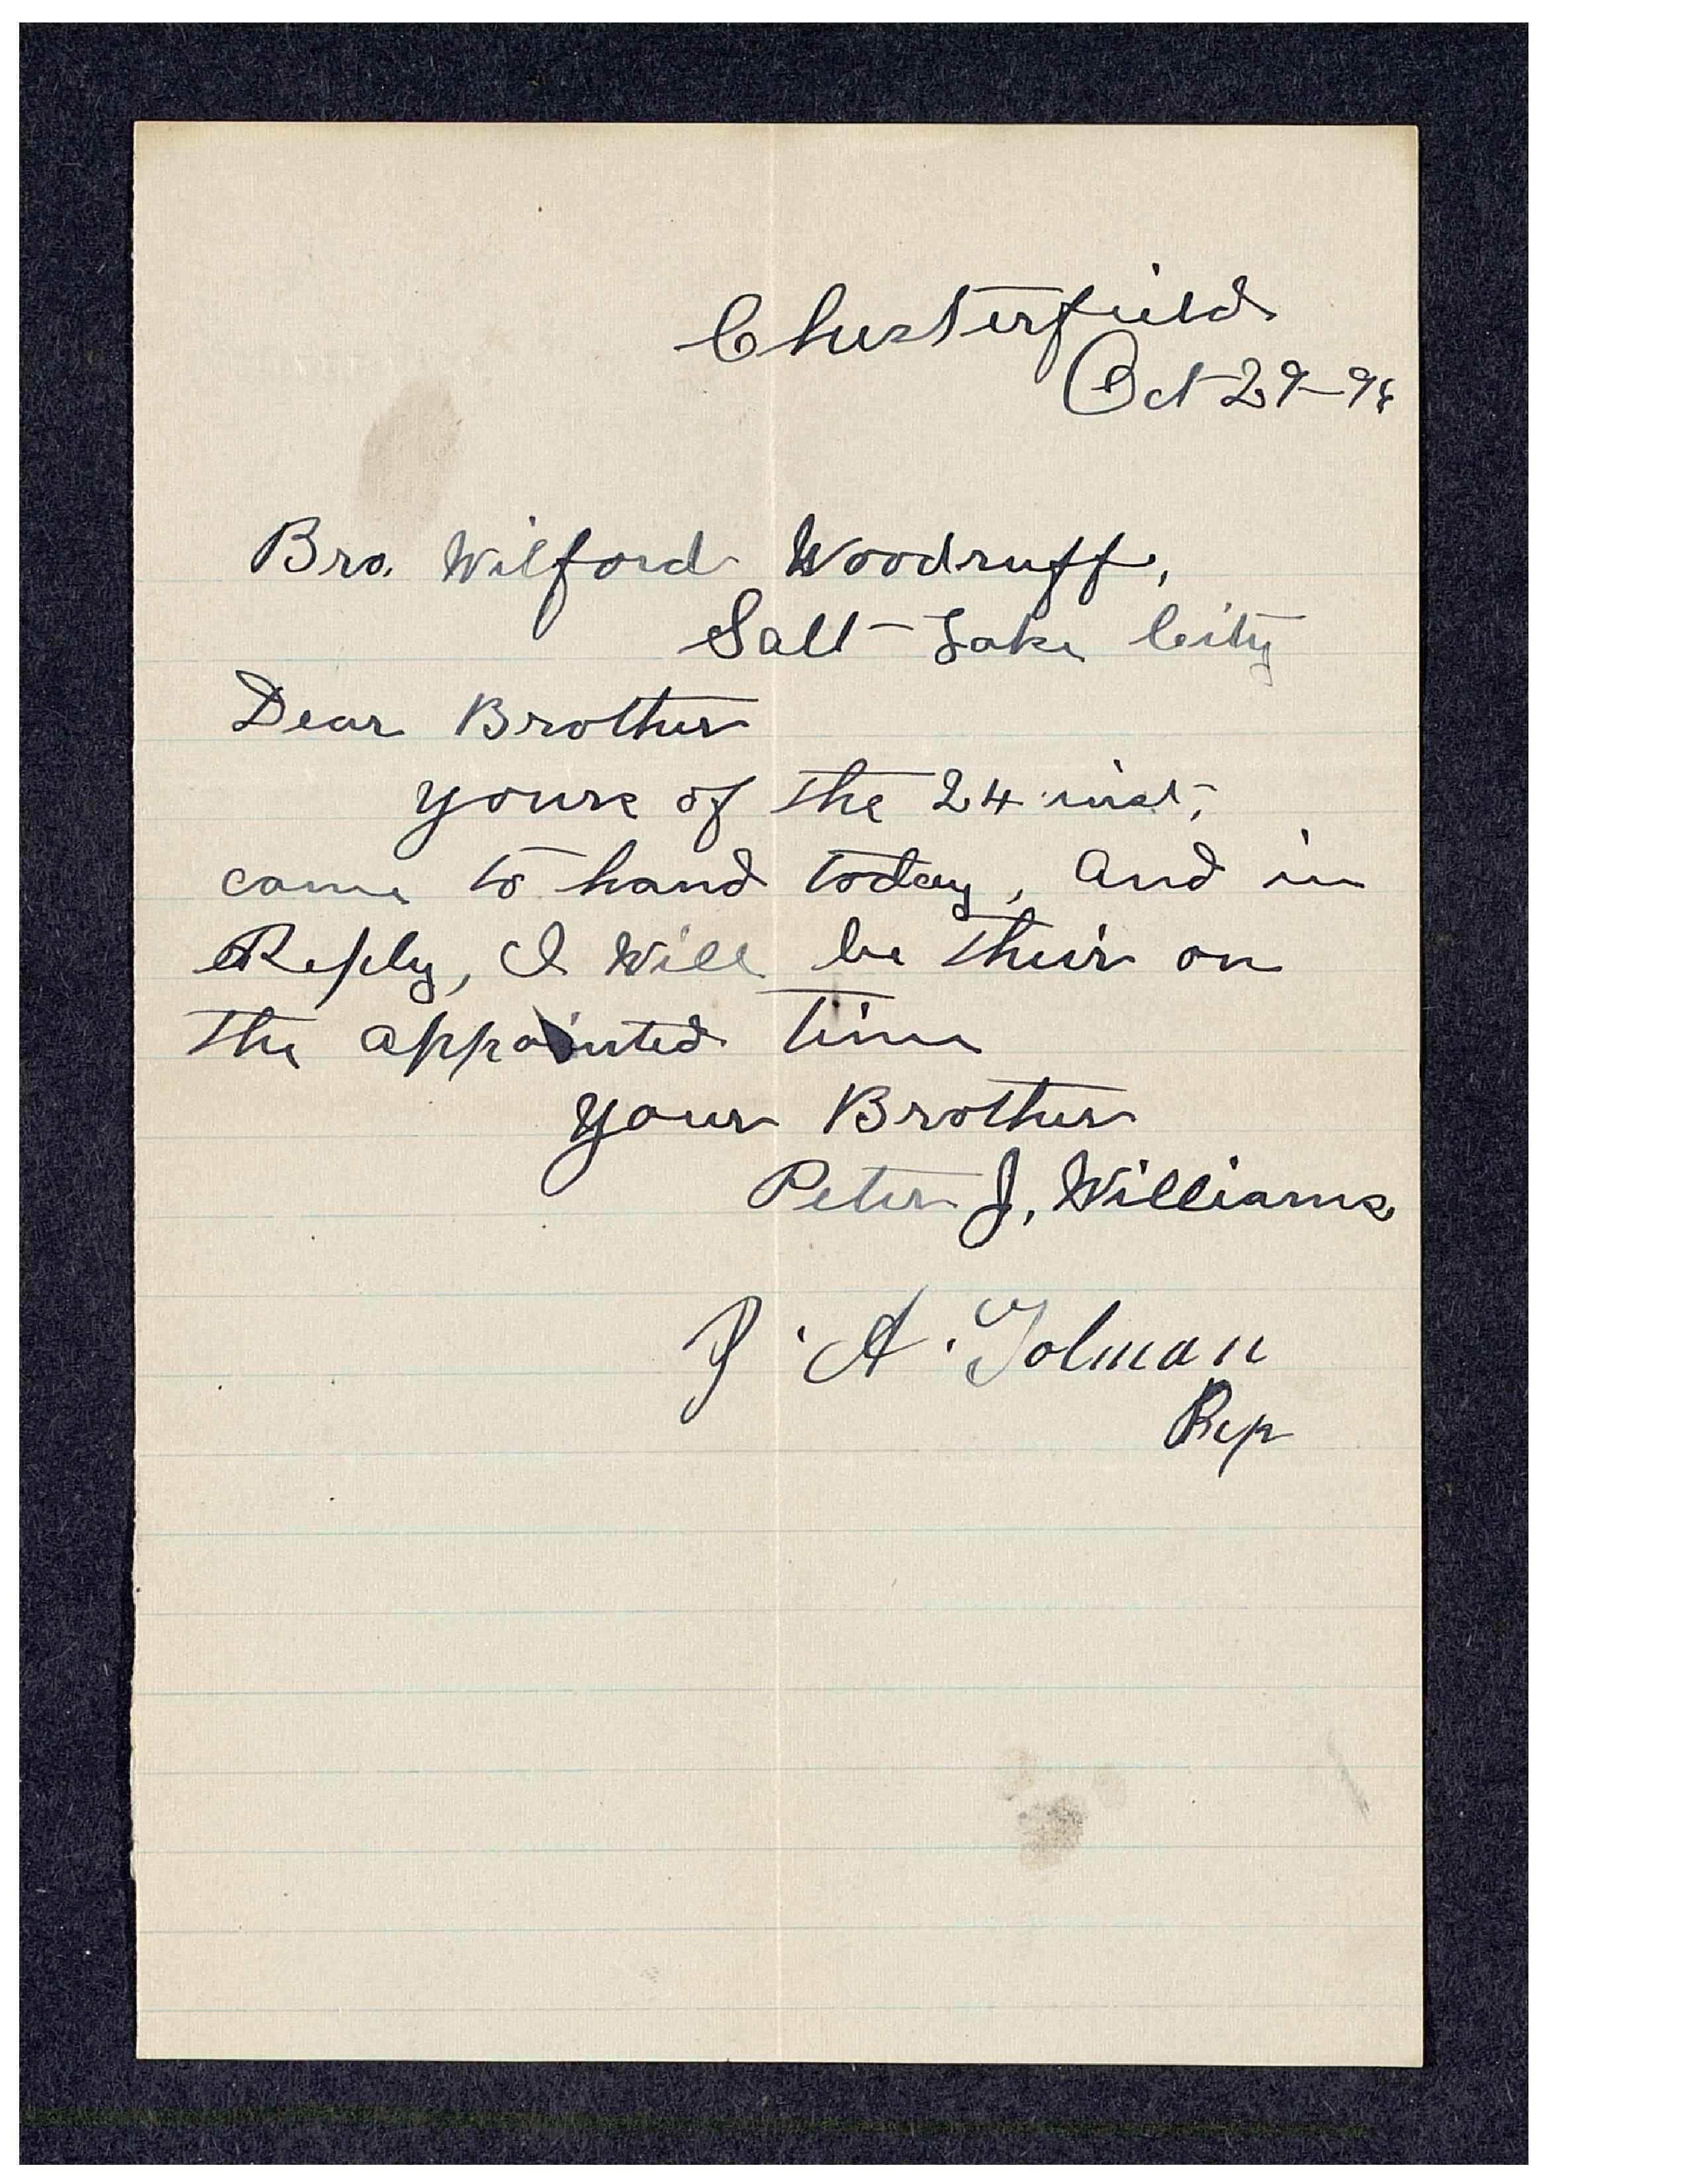 Chesterfield
Oct 29-96
Bro. Wilford Woodruff,
Salt Lake City
Dear Brother
yours of the 24 inst,
came to hand today, and in
Reply, I will be their on
the appointed time
your Brother
Peter J, Williams
J. A. Tolman
Bsp